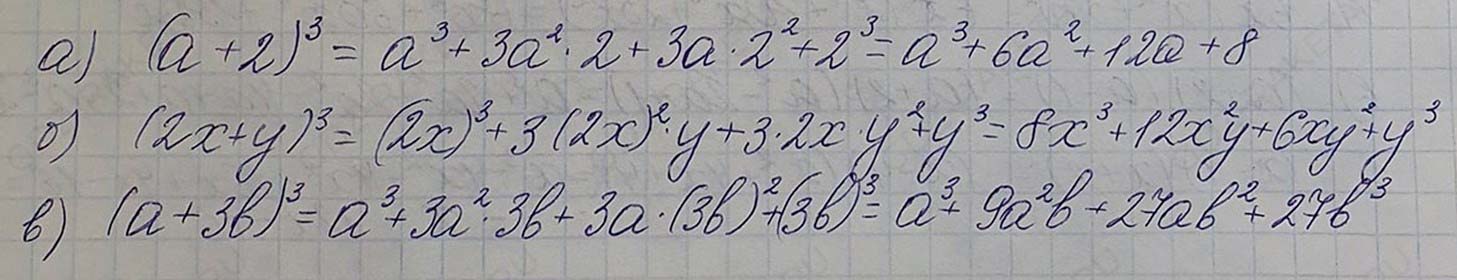 а) (a + 2)³ = a³ + 3a² · 2 + 3a · 2² + 2³ = a³ + 6a² + 12a + 8
б) (2x + y)³ = (2x)³ + 3(2x)² · y + 3 · 2x · y² + y³ = 8x³ + 12x²y + 6xy² + y³
в) (a + 3b)³ = a³ + 3a² · 3b + 3a · (3b)² + (3b)³ = a³ + 9a²b + 27ab² + 27b³